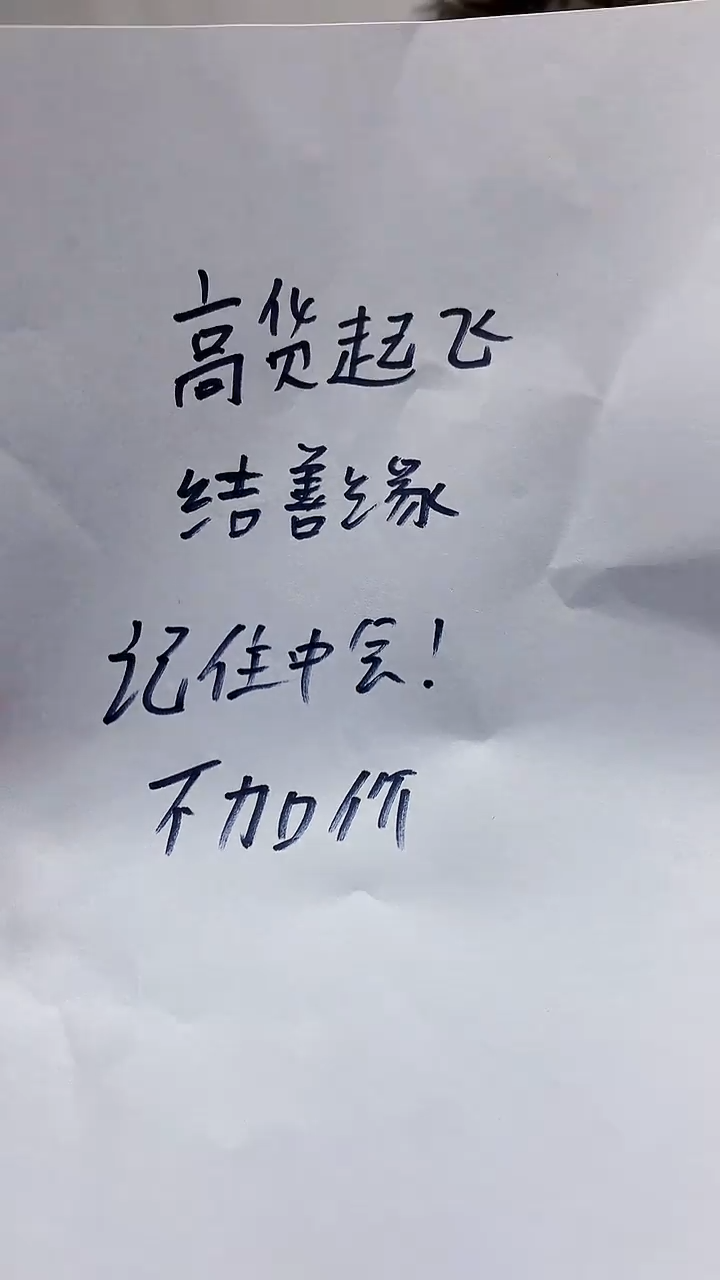 高货起飞
结善缘
记住中会!
不加价